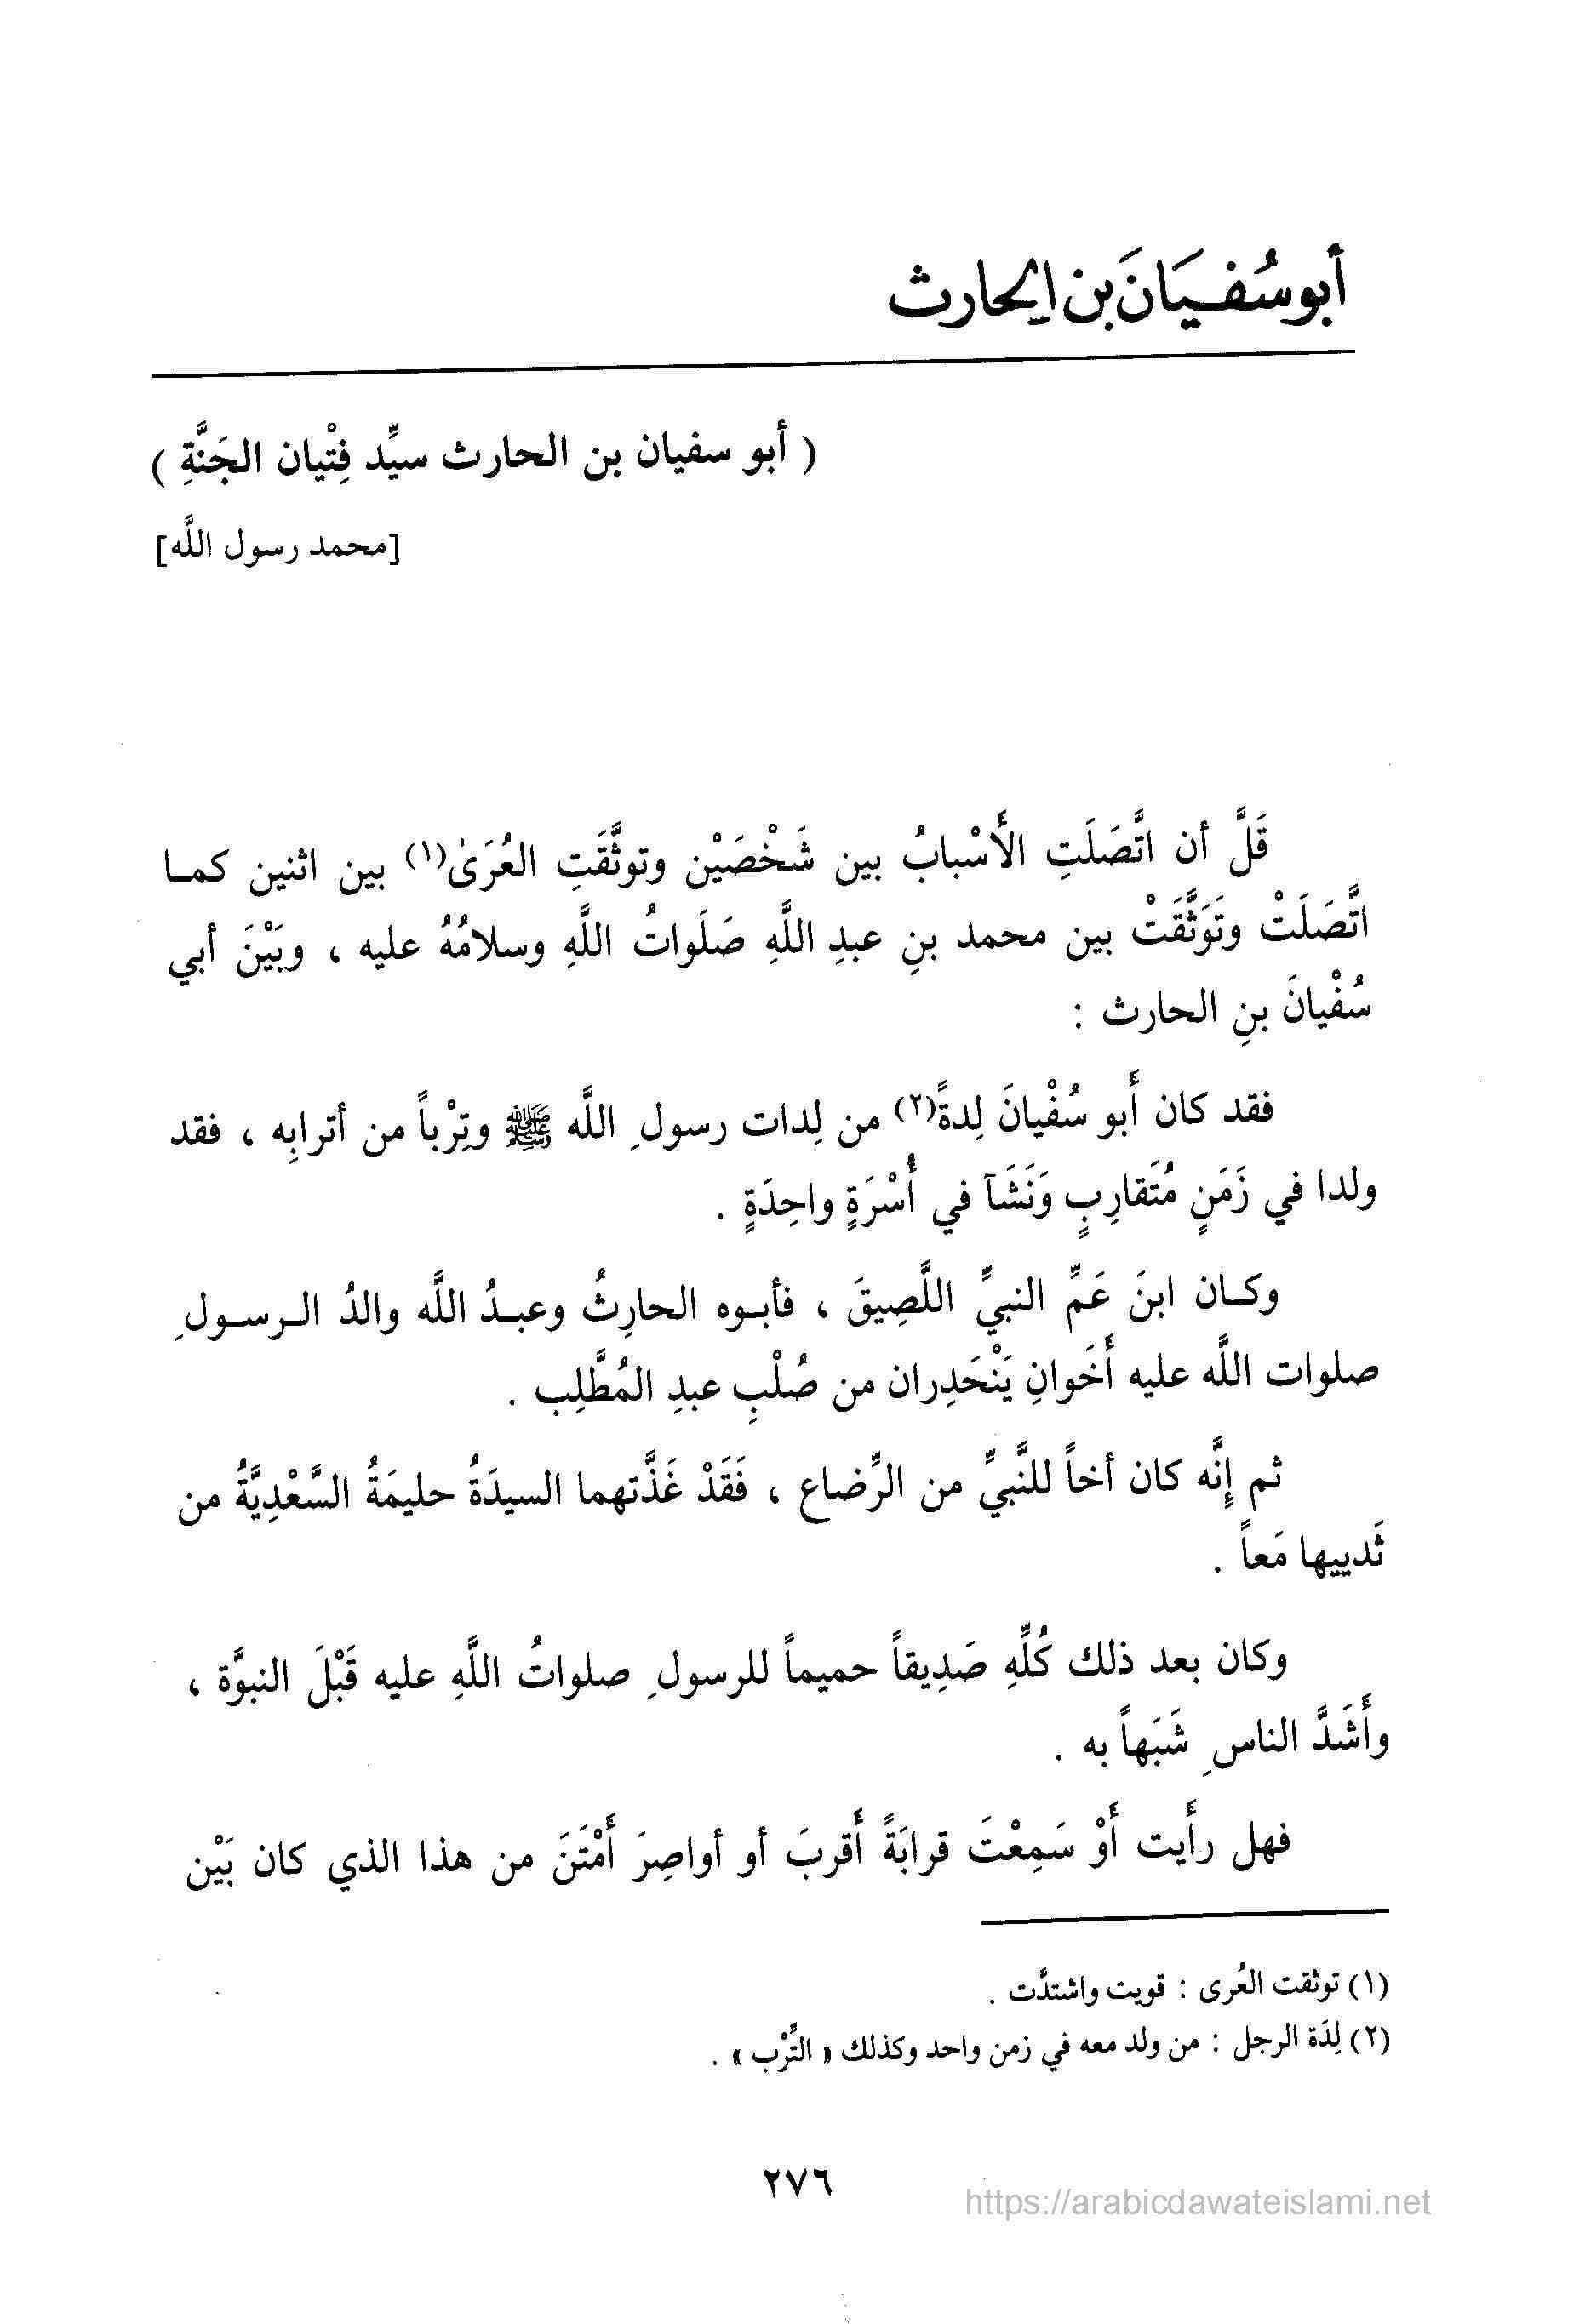 أبو سُفيَانَ بن الحارث
( أبو سفيان بن الحارث سيِّد فِتْيان الجَنَّةِ )
[محمد رسول اللَّه]
قَلَّ أن اتَّصَلَتِ الأَسْبابُ بين شَخْصَيْن وتوثَّقَتِ العُرَىٰ(١) بين اثنين كمـا
اتَّصَلَتْ وتَوَثَّقَتْ بين محمد بنِ عبدِ اللَّهِ صَلَواتُ اللَّهِ وسلامُهُ عليه ، وبَيْنَ أبي
سُفْيانَ بنِ الحارث :
فقد كان أَبو سُفْيانَ لِدةً(٢) من لِدات رسولِ اللَّه ﷺ وتِرْباً من أترابِه ، فقد
ولدا في زَمَنٍ مُتَقارِبٍ وَنَشَآ في أُسْرَةٍ واحِدَةٍ .
وكـان ابنَ عَمِّ النبيِّ اللَّصِيقَ ، فأبـوه الحارِثُ وعبـدُ اللَّه والدُ الـرسـولِ
صلوات اللَّه عليه أَخَوانِ يَنْحَدِران من صُلْبِ عبدِ المُطَّلِب .
ثم إِنَّه كان أخاً للنَّبيِّ من الرِّضاع ، فَقَدْ غَذَّتهما السيدَةُ حليمَةُ السَّعْدِيَّةُ من
ثَدييها مَعاً .
وكان بعد ذلك كُلِّهِ صَدِيقاً حميماً للرسولِ صلواتُ اللَّهِ عليه قَبْلَ النبوَّة ،
وأَشَدَّ الناسِ شَبَهاً به .
فهل رأَيت أَوْ سَمِعْتَ قرابَةً أَقربَ أو أواصِرَ أَمْتَنَ من هذا الذي كان بَيْن
(١) توثقت العُرى : قويت واشتدَّت .
(٢) لِدَة الرجل : من ولد معه في زمن واحد وكذلك « التِّرْب » .
٢٧٦
https://arabicdawateislami.net